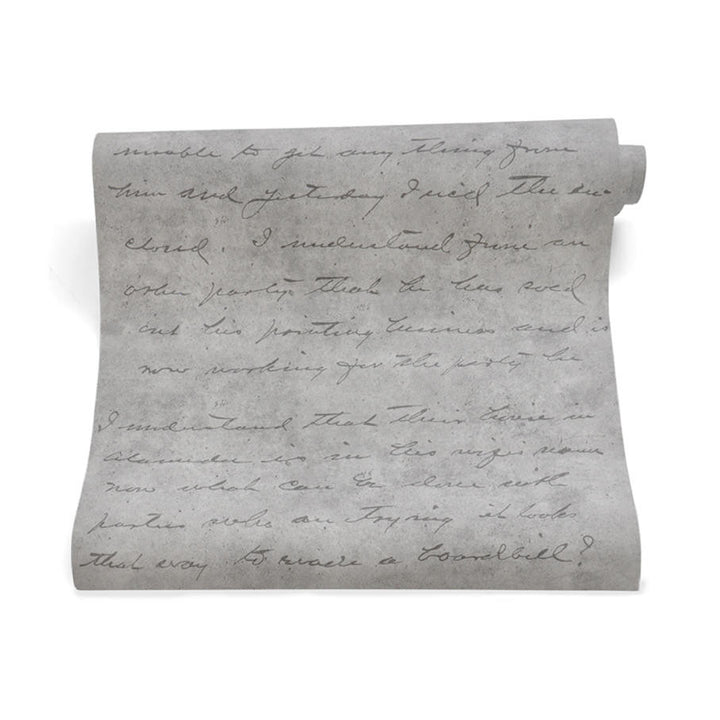 unable to get any thing from
him and yesterday I recd the en-
closed. I understand from an
other party that he has sold
out his printing business and is
now working for the party he
I understand that their house in
Alameda is in his wife's name
now what can be done with
parties who are trying it looks
that way to evade a boardbill?